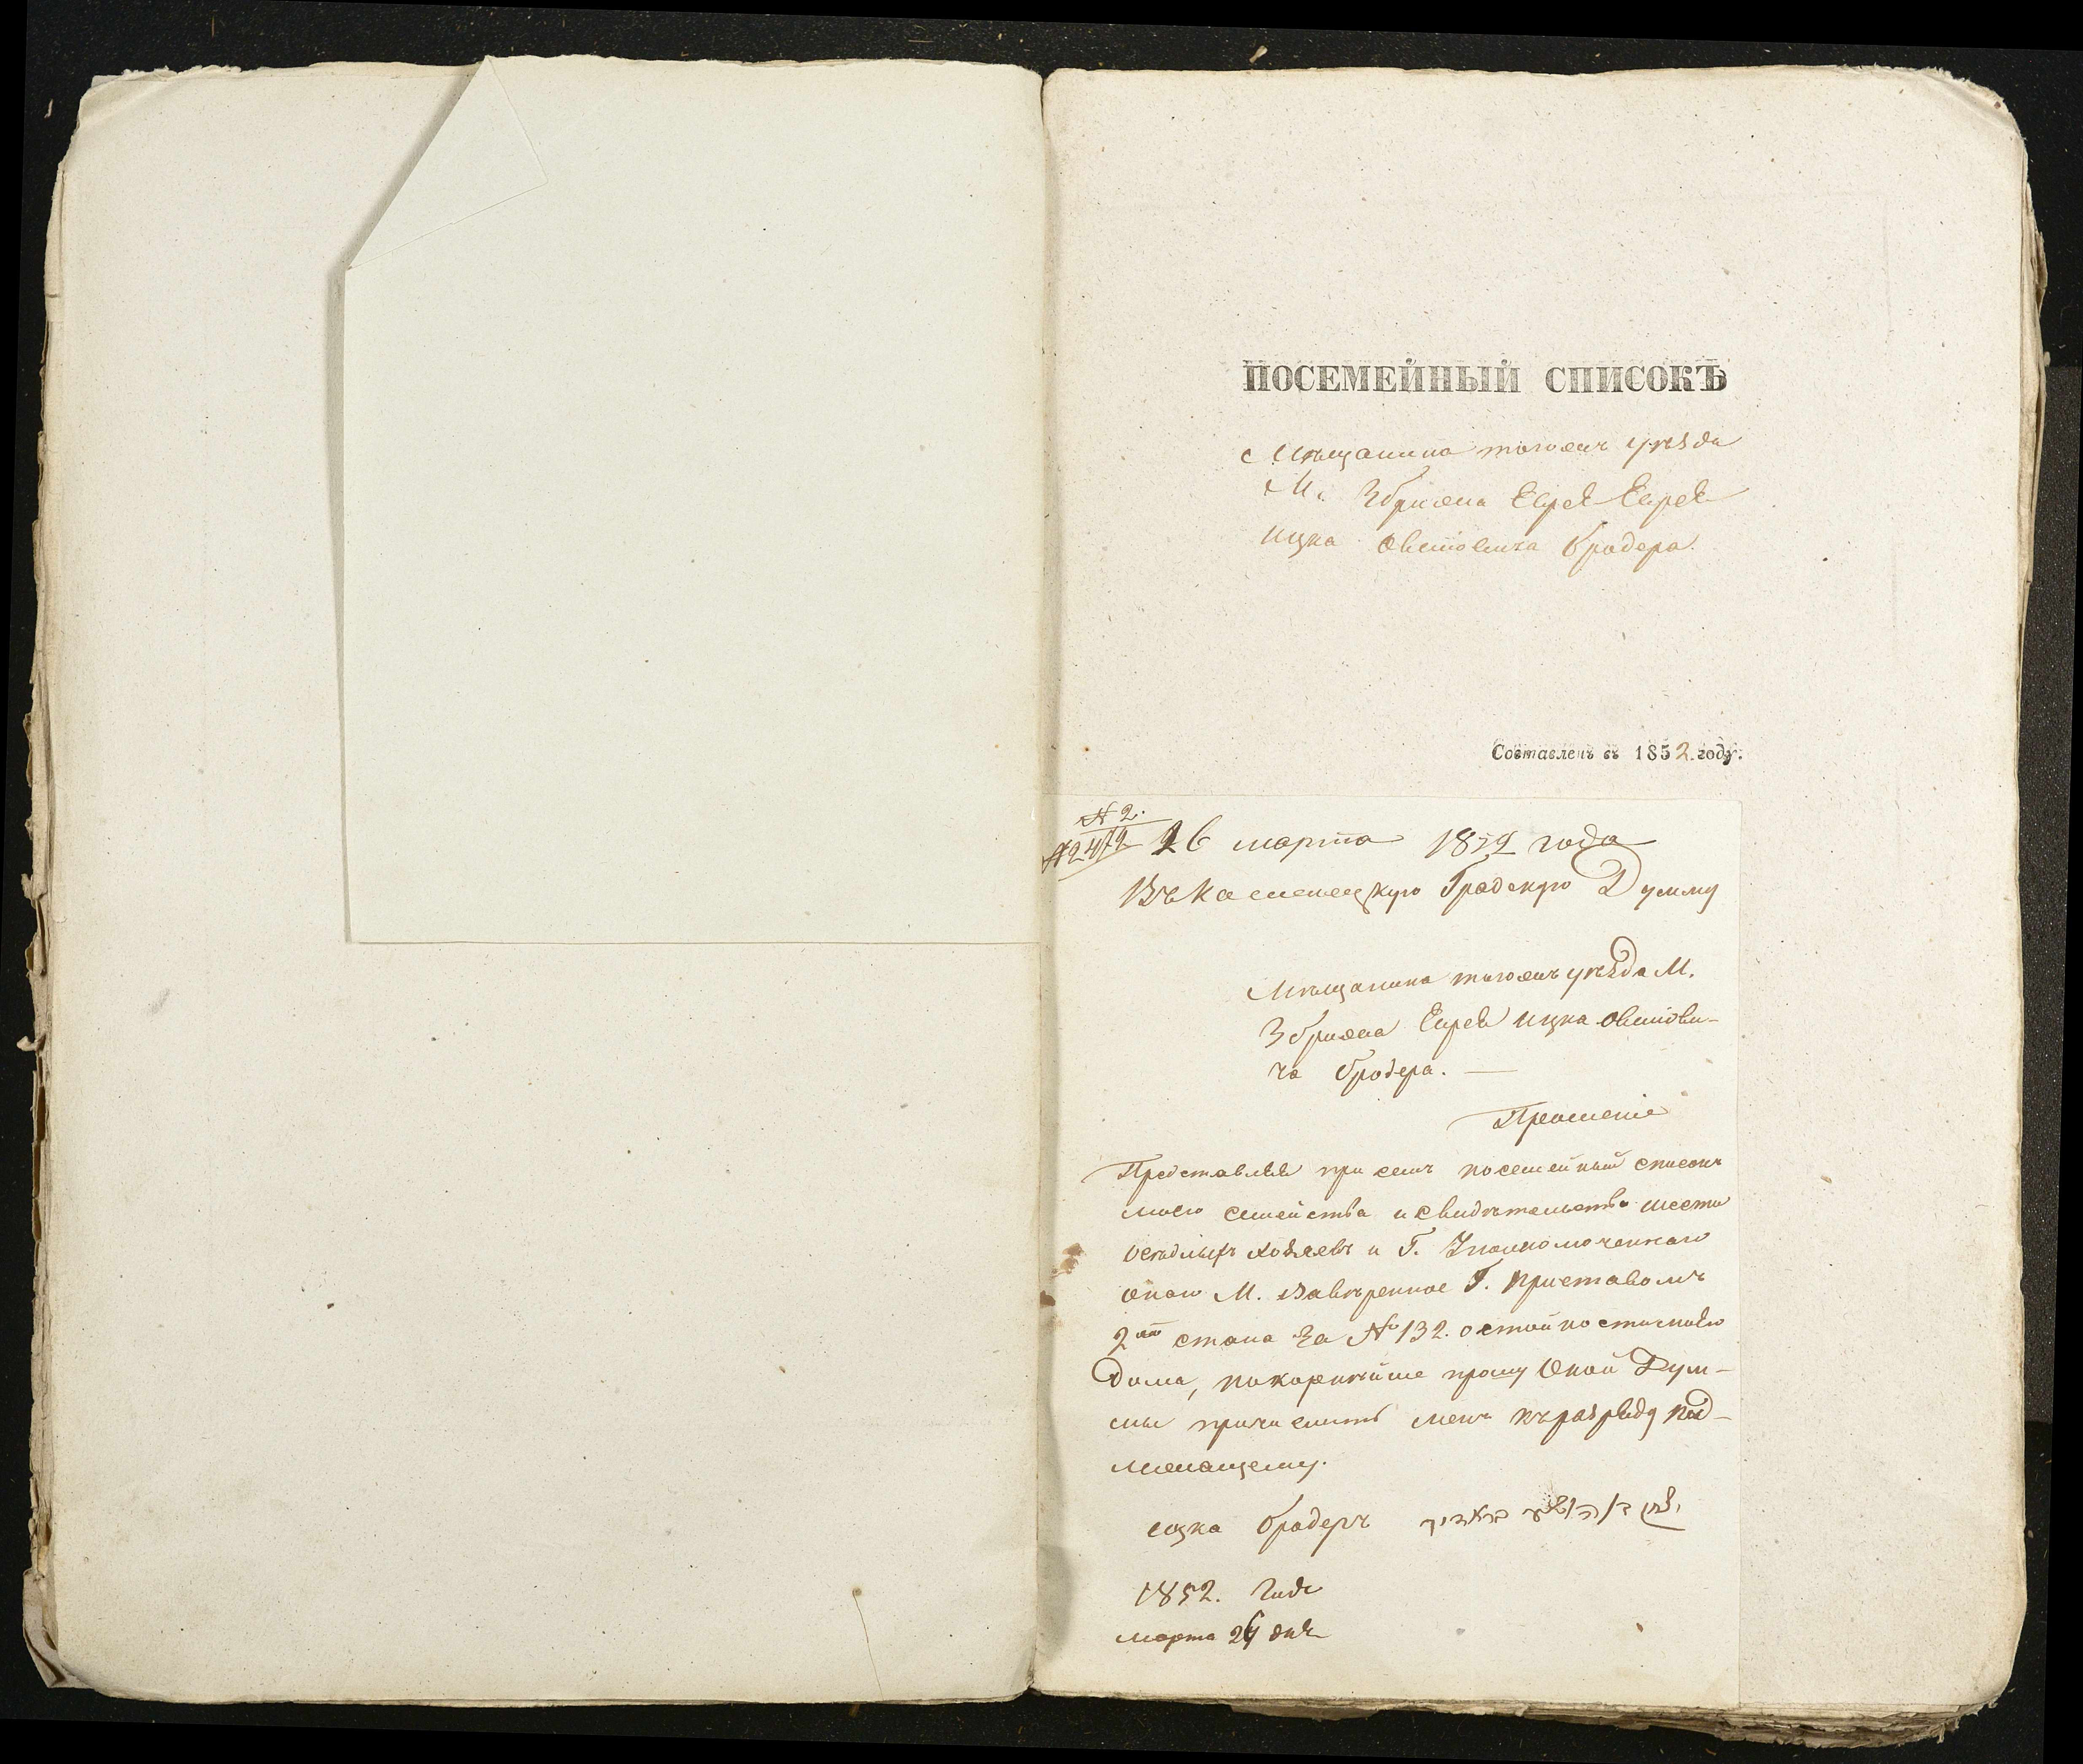 ПОСЕМЕЙНЫЙ СПИСОКЪ
Мѣщанина тогожъ уѣзда
М. Збрижа Еврея Еврея
ицка Овшіовича бродера.
Составленъ въ 1852 году.
№ 2.
№ 2472
26 марта 1852 года
Въ Каменецкую Градскую Думму
Мѣщанина тогожъ уѣзда М.
Збрижа Еврея ицка Овшіови-
ча бродера.
Прошеніе
Представляя при семъ посемейный списокъ
моего семейства и свидѣтельство шести
осѣдлыхъ хозяевъ и Г. Уполномоченнаго
онаго М. Завѣренное Г. Приставомъ
2го стана за № 132. о стоимости моего
дома, покорнѣйше прошу Оной Дум-
мы причислить меня къ разряду над-
лежащему.
ицка бродеръ
1852. Года
марта 24 дня